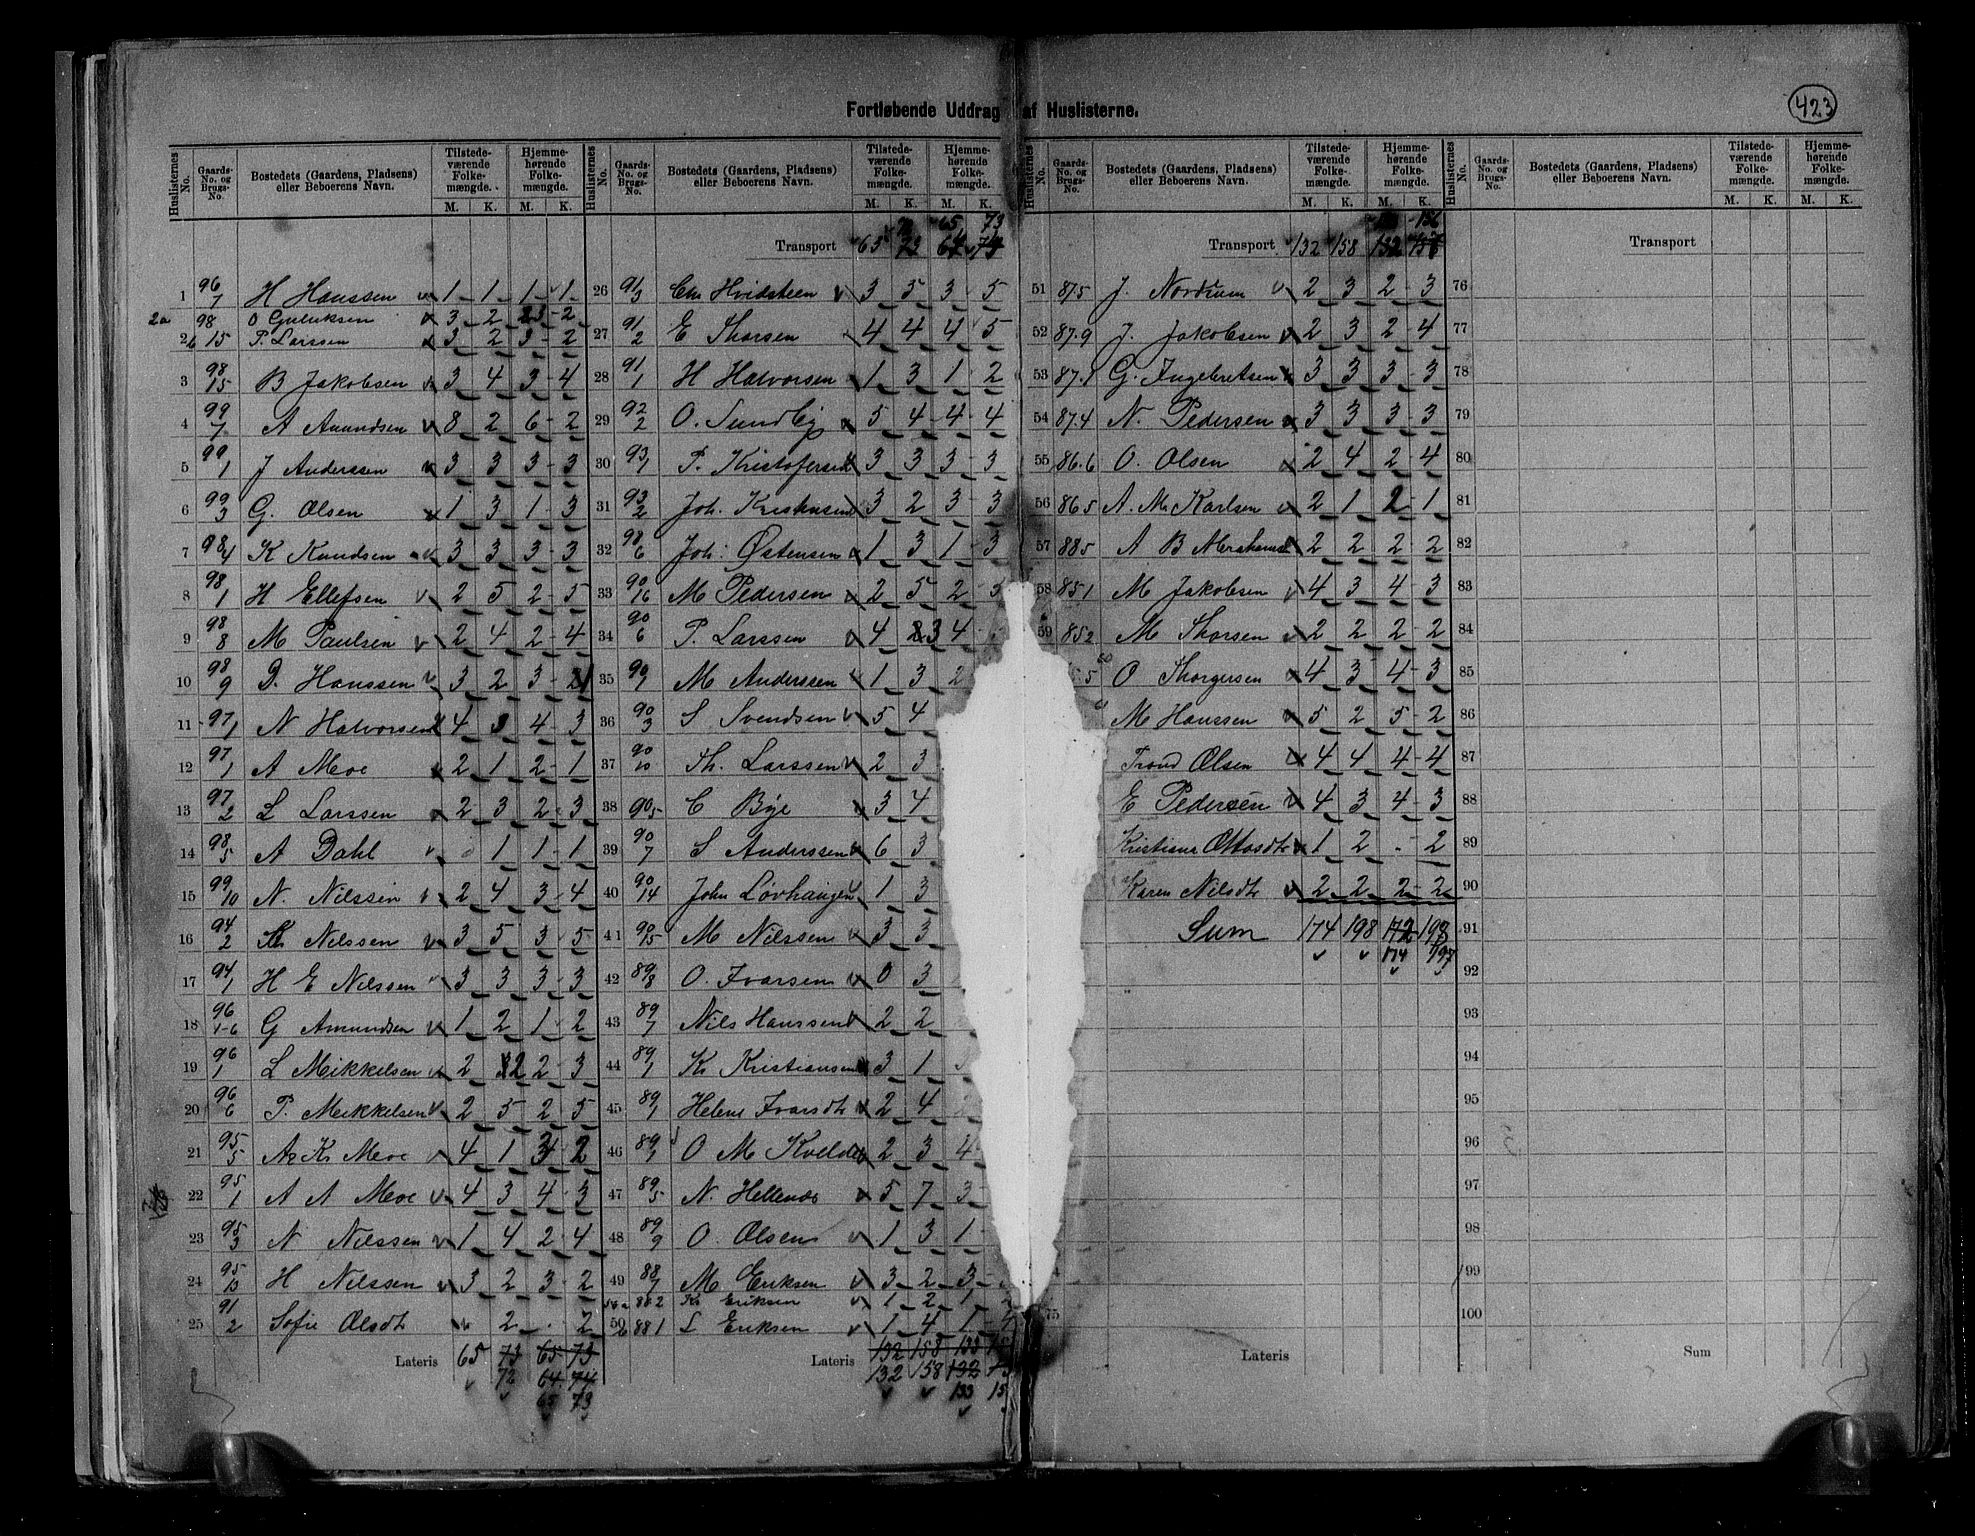 423
Fortløbende Uddrag af Huslisterne.
Huslisternes No. Gaards-No. og Brugs-No. Bostedets (Gaardens, Pladsens) eller Beboerens Navn. Tilstedeværende Folkemængde. M. K. Hjemmehørende Folkemængde. M. K.
1 96/7 H Hanssen 1 1 1 1
2a 98 O Gulliksen 3 2 3 2
2b 15 P. Larssen 3 2 3 2
3 98/15 B Jakobsen 3 4 3 4
4 99/7 A Amundsen 8 2 6 2
5 99/1 J Anderssen 3 3 3 3
6 99/3 G. Olsen 1 3 1 3
7 98/4 K Knudsen 3 3 3 3
8 98/1 H Ellefsen 2 5 2 5
9 98/8 M Paulsen 2 4 2 4
10 98/9 D. Hanssen 3 2 3
11 97/1 N Halvorsen 4 3 4 3
12 97/1 A Moe 2 1 2 1
13 97/2 L Larssen 2 3 2 3
14 98/5 A Dahl 1 1 1
15 99/10 N. Nilssen 2 4 3 4
16 94/2 Nilssen 3 5 3 5
17 94/1 H E Nilssen 3 3 3 3
18 96/1-6 G Amundsen 1 2 1 2
19 96/1 L Mikkelsen 2 2 2 3
20 96/6 P. Mikkelsen 2 5 2 5
21 95/5 A K Moe 4 1 3 2
22 95/1 A A Moe 4 3 4 3
23 95/3 N Nilssen 1 4 2 4
24 95/10 H Nilssen 3 2 3 2
25 91/2 Sofie Olsdt 2 . 2
Lateris 65 73 65 73
72 64 74
65 73
Huslisternes No. Gaards-No. og Brugs-No. Bostedets (Gaardens, Pladsens) eller Beboerens Navn. Tilstedeværende Folkemængde. M. K. Hjemmehørende Folkemængde. M. K.
65 73
Transport 65 73 64 74
26 91/3 Chr Hvidsteen 3 5 3 5
27 91/2 E Thorsen 4 4 4 5
28 91/1 H Halvorsen 1 3 1 2
29 92/2 O. Sundby 5 4 4 4
30 93/1 P. Kristofersen 3 3 3 3
31 93/2 Joh. Kristiansen 3 2 3 3
32 98/6 Joh: Østensen 1 3 1 3
33 90/16 M Pedersen 2 5 2 5
34 90/6 P. Larssen 4 3 4
35 90/1 M Anderssen 1 3 2
36 90/3 S Svendsen 5 4
37 90/10 Th. Larssen 2 3
38 90/5 C Bye 3 4
39 90/7 S Anderssen 6 3
40 90/14 John Lovhaugen 1 3
41 90/15 M Nilssen 3 3
42 89/8 O. Ivarsen 0 3
43 89/7 Nils Hanssen 2 2
44 89/1 Kr Kristiansen 3 1
45 89/1 Helene Ivarsdt 2 4
46 89/1 O M 2 3 4
47 89/5 N. 5 7 3
48 89/9 O. Olsen 1 3 1
49 88/7 M Eriksen 3 2 3
50a 88 2 Kr Eriksen 1 2 1 2
50b 88 1 L Eriksen 1 4 1 4
Lateris 132 158 133
132 158 132
133
Huslisternes No. Gaards-No. og Brugs-No. Bostedets (Gaardens, Pladsens) eller Beboerens Navn. Tilstedeværende Folkemængde. M. K. Hjemmehørende Folkemængde. M. K.
156
Transport 132 158 132
51 87.5 J Nordrum 2 3 2 3
52 87.9 J. Jakobsen 2 3 2 4
53 87.1 G. Ingebretsen 3 3 3 3
54 87.4 N. Pedersen 3 3 3 3
55 86.6 O. Olsen 2 4 2 4
56 86 5 A. M. Karlsen 2 1 2 1
57 88 5 A B 2 2 2 2
58 85 1 M Jakobsen 4 3 4 3
59 85 2 M Thorsen 2 2 2 2
60 5 O Thorgersen 4 3 4 3
61 M Hanssen 5 2 5 2
Trond Olsen 4 4 4 4
E Pedersen 4 3 4 3
Kristiane Ottosdt 1 2 - 2
Karen Nilsdt 2 2 2 2
Sum 174 198 172 198
174 197
75
Lateris
Huslisternes No. Gaards-No. og Brugs-No. Bostedets (Gaardens, Pladsens) eller Beboerens Navn. Tilstedeværende Folkemængde. M. K. Hjemmehørende Folkemængde. M. K.
Transport
76
77
78
79
80
81
82
83
84
85
86
87
88
89
90
91
92
93
94
95
96
97
98
99
100
Sum